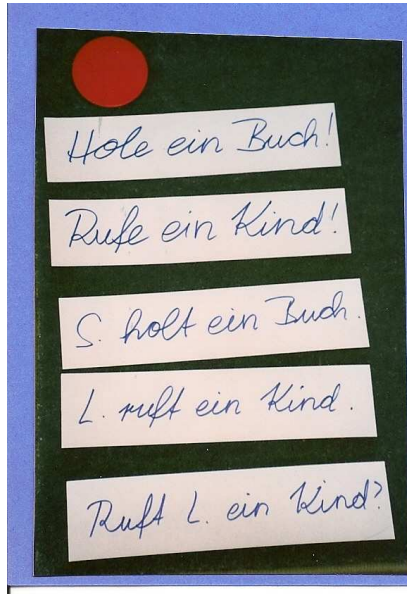 Hole ein Buch!
Rufe ein Kind!
S. holt ein Buch.
L. ruft ein Kind.
Ruft L. ein Kind?